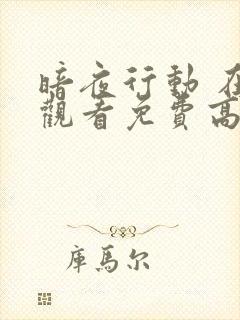 暗夜行動 在
觀看免費高
庫馬尔